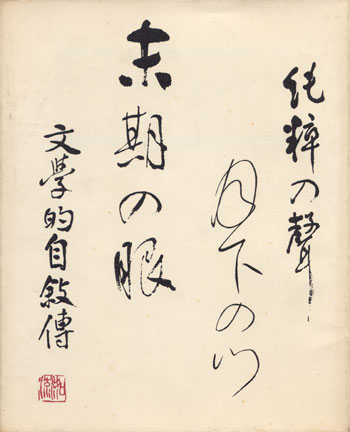 純粹の聲
月下の門
末期の眼
文學的自敘傳